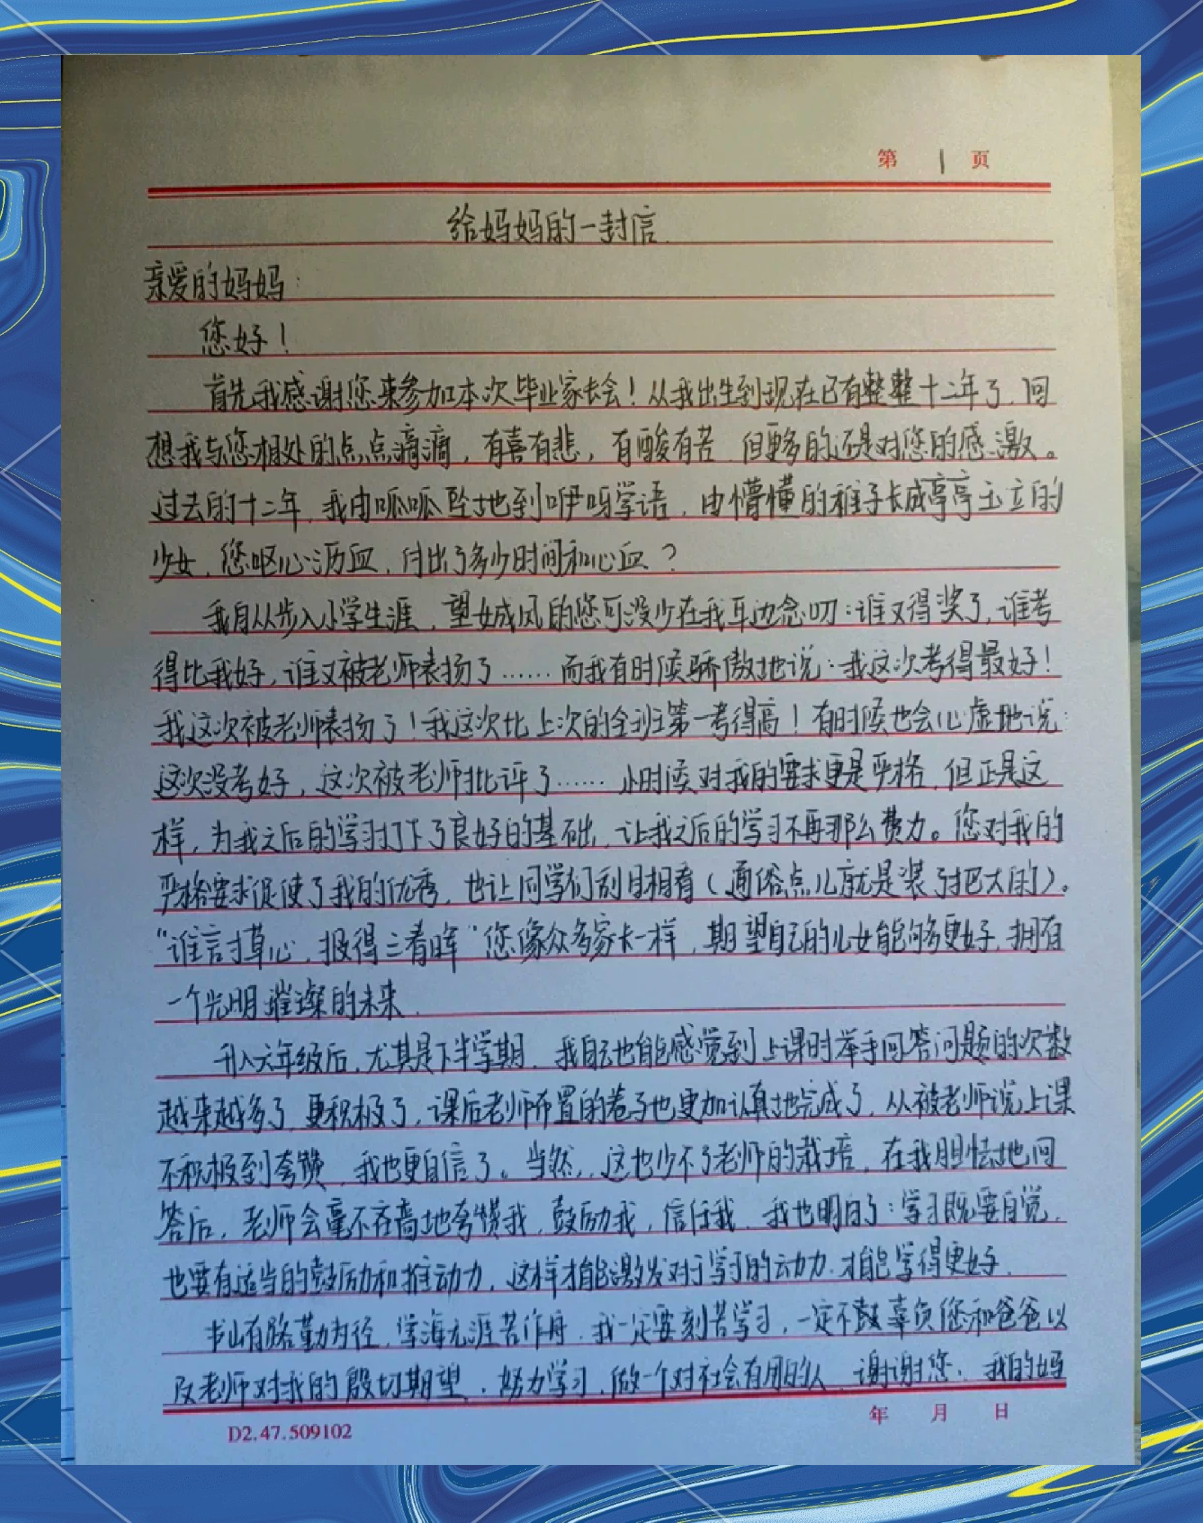 第 1 页
给妈妈的一封信
亲爱的妈妈:
您好!
首先我感谢您来参加本次毕业家长会!从我出生到现在已有整整十二年了,回
想我与您相处的点点滴滴,有喜有悲,有酸有苦,但更多的还是对您的感激。
过去的十二年,我由呱呱坠地到咿呀学语,由懵懂的稚子长成亭亭玉立的
少女,您呕心沥血,付出了多少时间和心血?
我自从步入小学生涯,望女成凤的您可没少在我耳边念叨:谁又得奖了,谁考
得比我好,谁又被老师表扬了……而我有时候骄傲地说:我这次考得最好!
我这次被老师表扬了!我这次比上次的全班第一考得高!有时候也会心虚地说:
这次没考好,这次被老师批评了……小时候对我的要求更是严格,但正是这
样,为我之后的学习打下了良好的基础,让我之后的学习不再那么费力。您对我的
严格要求促使了我的优秀,也让同学们刮目相看(通俗点儿就是装了把大的)。
“谁言寸草心,报得三春晖”您像众多家长一样,期望自己的儿女能够更好,拥有
一个光明璀璨的未来.
升入六年级后,尤其是下半学期,我自己也能感觉到上课时举手回答问题的次数
越来越多了,更积极了,课后老师布置的卷子也更加认真地完成了,从被老师说上课
不积极到夸赞,我也更自信了。当然,这也少不了老师的栽培,在我胆怯地回
答后,老师会毫不吝啬地夸赞我,鼓励我,信任我,我也明白了:学习既要自觉,
也要有适当的鼓励和推动力,这样才能激发对于学习的动力.才能学得更好.
书山有路勤为径,学海无涯苦作舟,我一定要刻苦学习,一定不辜负您和爸爸以
及老师对我的殷切期望,努力学习,做一个对社会有用的人,谢谢您,我的妈
年 月 日
D2.47.509102